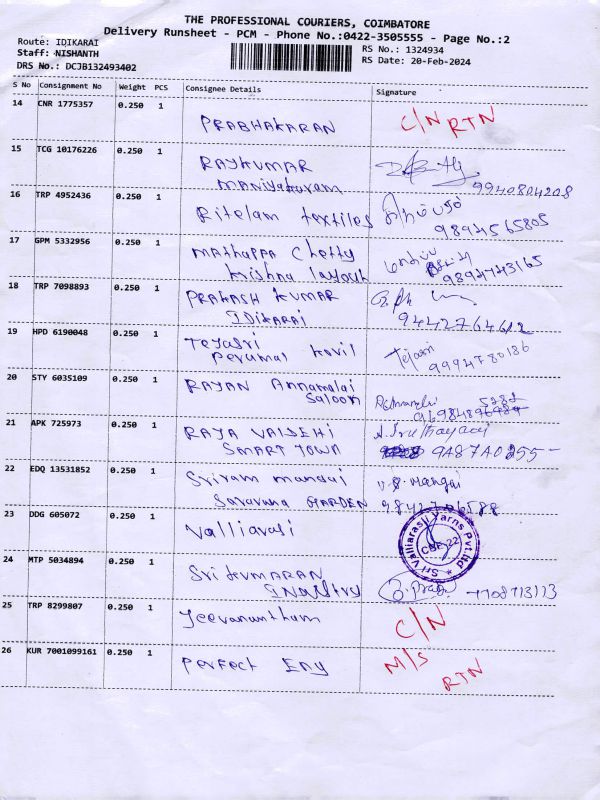 THE PROFESSIONAL COURIERS, COIMBATORE
Delivery Runsheet - PCM - Phone No.:0422-3505555 - Page No.:2
Route: IDIKARAI
RS No.: 1324934
Staff: NISHANTH
RS Date: 20-Feb-2024
DRS No.: DCJB132493402
S No Consignment No Weight PCS Consignee Details Signature
14 CNR 1775357 0.250 1
PRABHAKARAN C/N RTN
15 TCG 10176226 0.250 1
RAJKUMAR
maniyakaram 9940804208
16 TRP 4952436 0.250 1
Ritelam textiles
9894565805
17 GPM 5332956 0.250 1
mathappa Chetty
krishna layout 9894743165
18 TRP 7098893 0.250 1
PRAKASH KUMAR
IDIKARAI 9442764612
19 HPD 6190048 0.250 1
Tejasri Tejasri
Perumal Kovil 9994780186
20 STY 6035109 0.250 1
RAJAN Annamalai
Saloon
21 APK 725973 0.250 1
RAJA VAIDEHI
SMART TOWN
22 EDQ 13531852 0.250 1
Sriram mansai
Saravana GARDEN
23 DDG 605072 0.250 1
Valliarasi
Sri Valliarasi Yarns Pvt.Ltd
CBE-22
24 MTP 5034894 0.250 1
Sri KUMARAN
7708713113
25 TRP 8299807 0.250 1
Jeevanantham C/N
26 KUR 7001099161 0.250 1
Perfect Eng M/S RTN